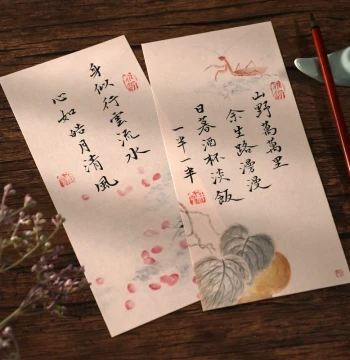 身似行雲流水
心如皓月清風
山野萬萬里
余生路漫漫
日暮酒杯淡飯
一半一半